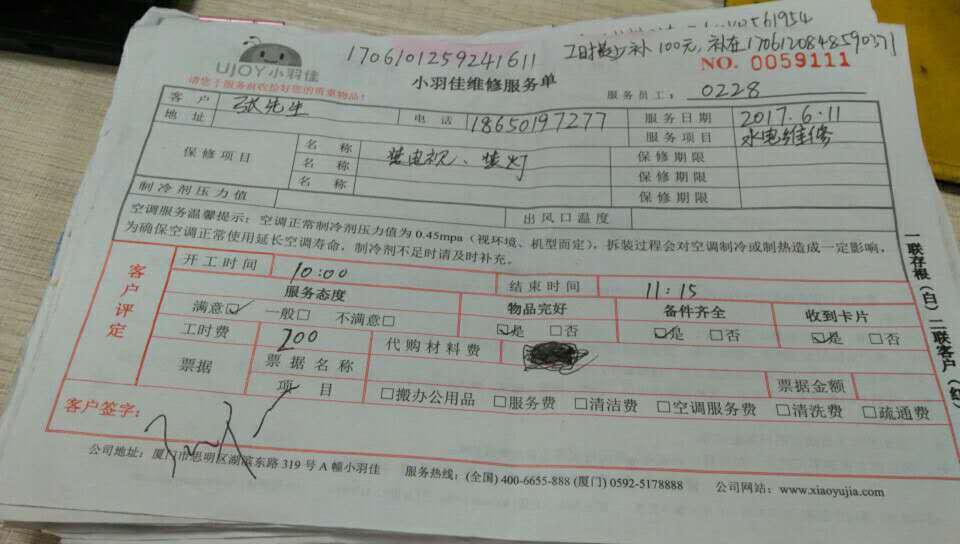 561954
1706101259241611
补100元,补在1706120848590371
UJOY小羽佳
小羽佳维修服务单
NO. 0059111
请您于服务前收拾好您的贵重物品!
服务员工: 0228
客户 张先生 电话 18650197277 服务日期 2017.6.11
地址 服务项目 水电维修
保修项目 名称 装电视、装灯 保修期限
名称 保修期限
名称 保修期限
制冷剂压力值 出风口温度
空调服务温馨提示:空调正常制冷剂压力值为0.45mpa(视环境、机型而定),拆装过程会对空调制冷或制热造成一定影响,
为确保空调正常使用延长空调寿命,制冷剂不足时请及时补充。
客户评定
开工时间 10:00 结束时间 11:15
服务态度 物品完好 备件齐全 收到卡片
满意☑ 一般□ 不满意□ ☑是 □否 ☑是 □否 ☑是 □否
工时费 200 代购材料费
票据 票据名称 票据金额
项目 □搬办公用品 □服务费 □清洁费 □空调服务费 □清洗费 □疏通费
客户签字:
公司地址:厦门市思明区湖滨东路319号A幢小羽佳 服务热线:(全国)400-6655-888 (厦门)0592-5178888 公司网站:www.xiaoyujia.com
一联存根(白)二联客户(红)